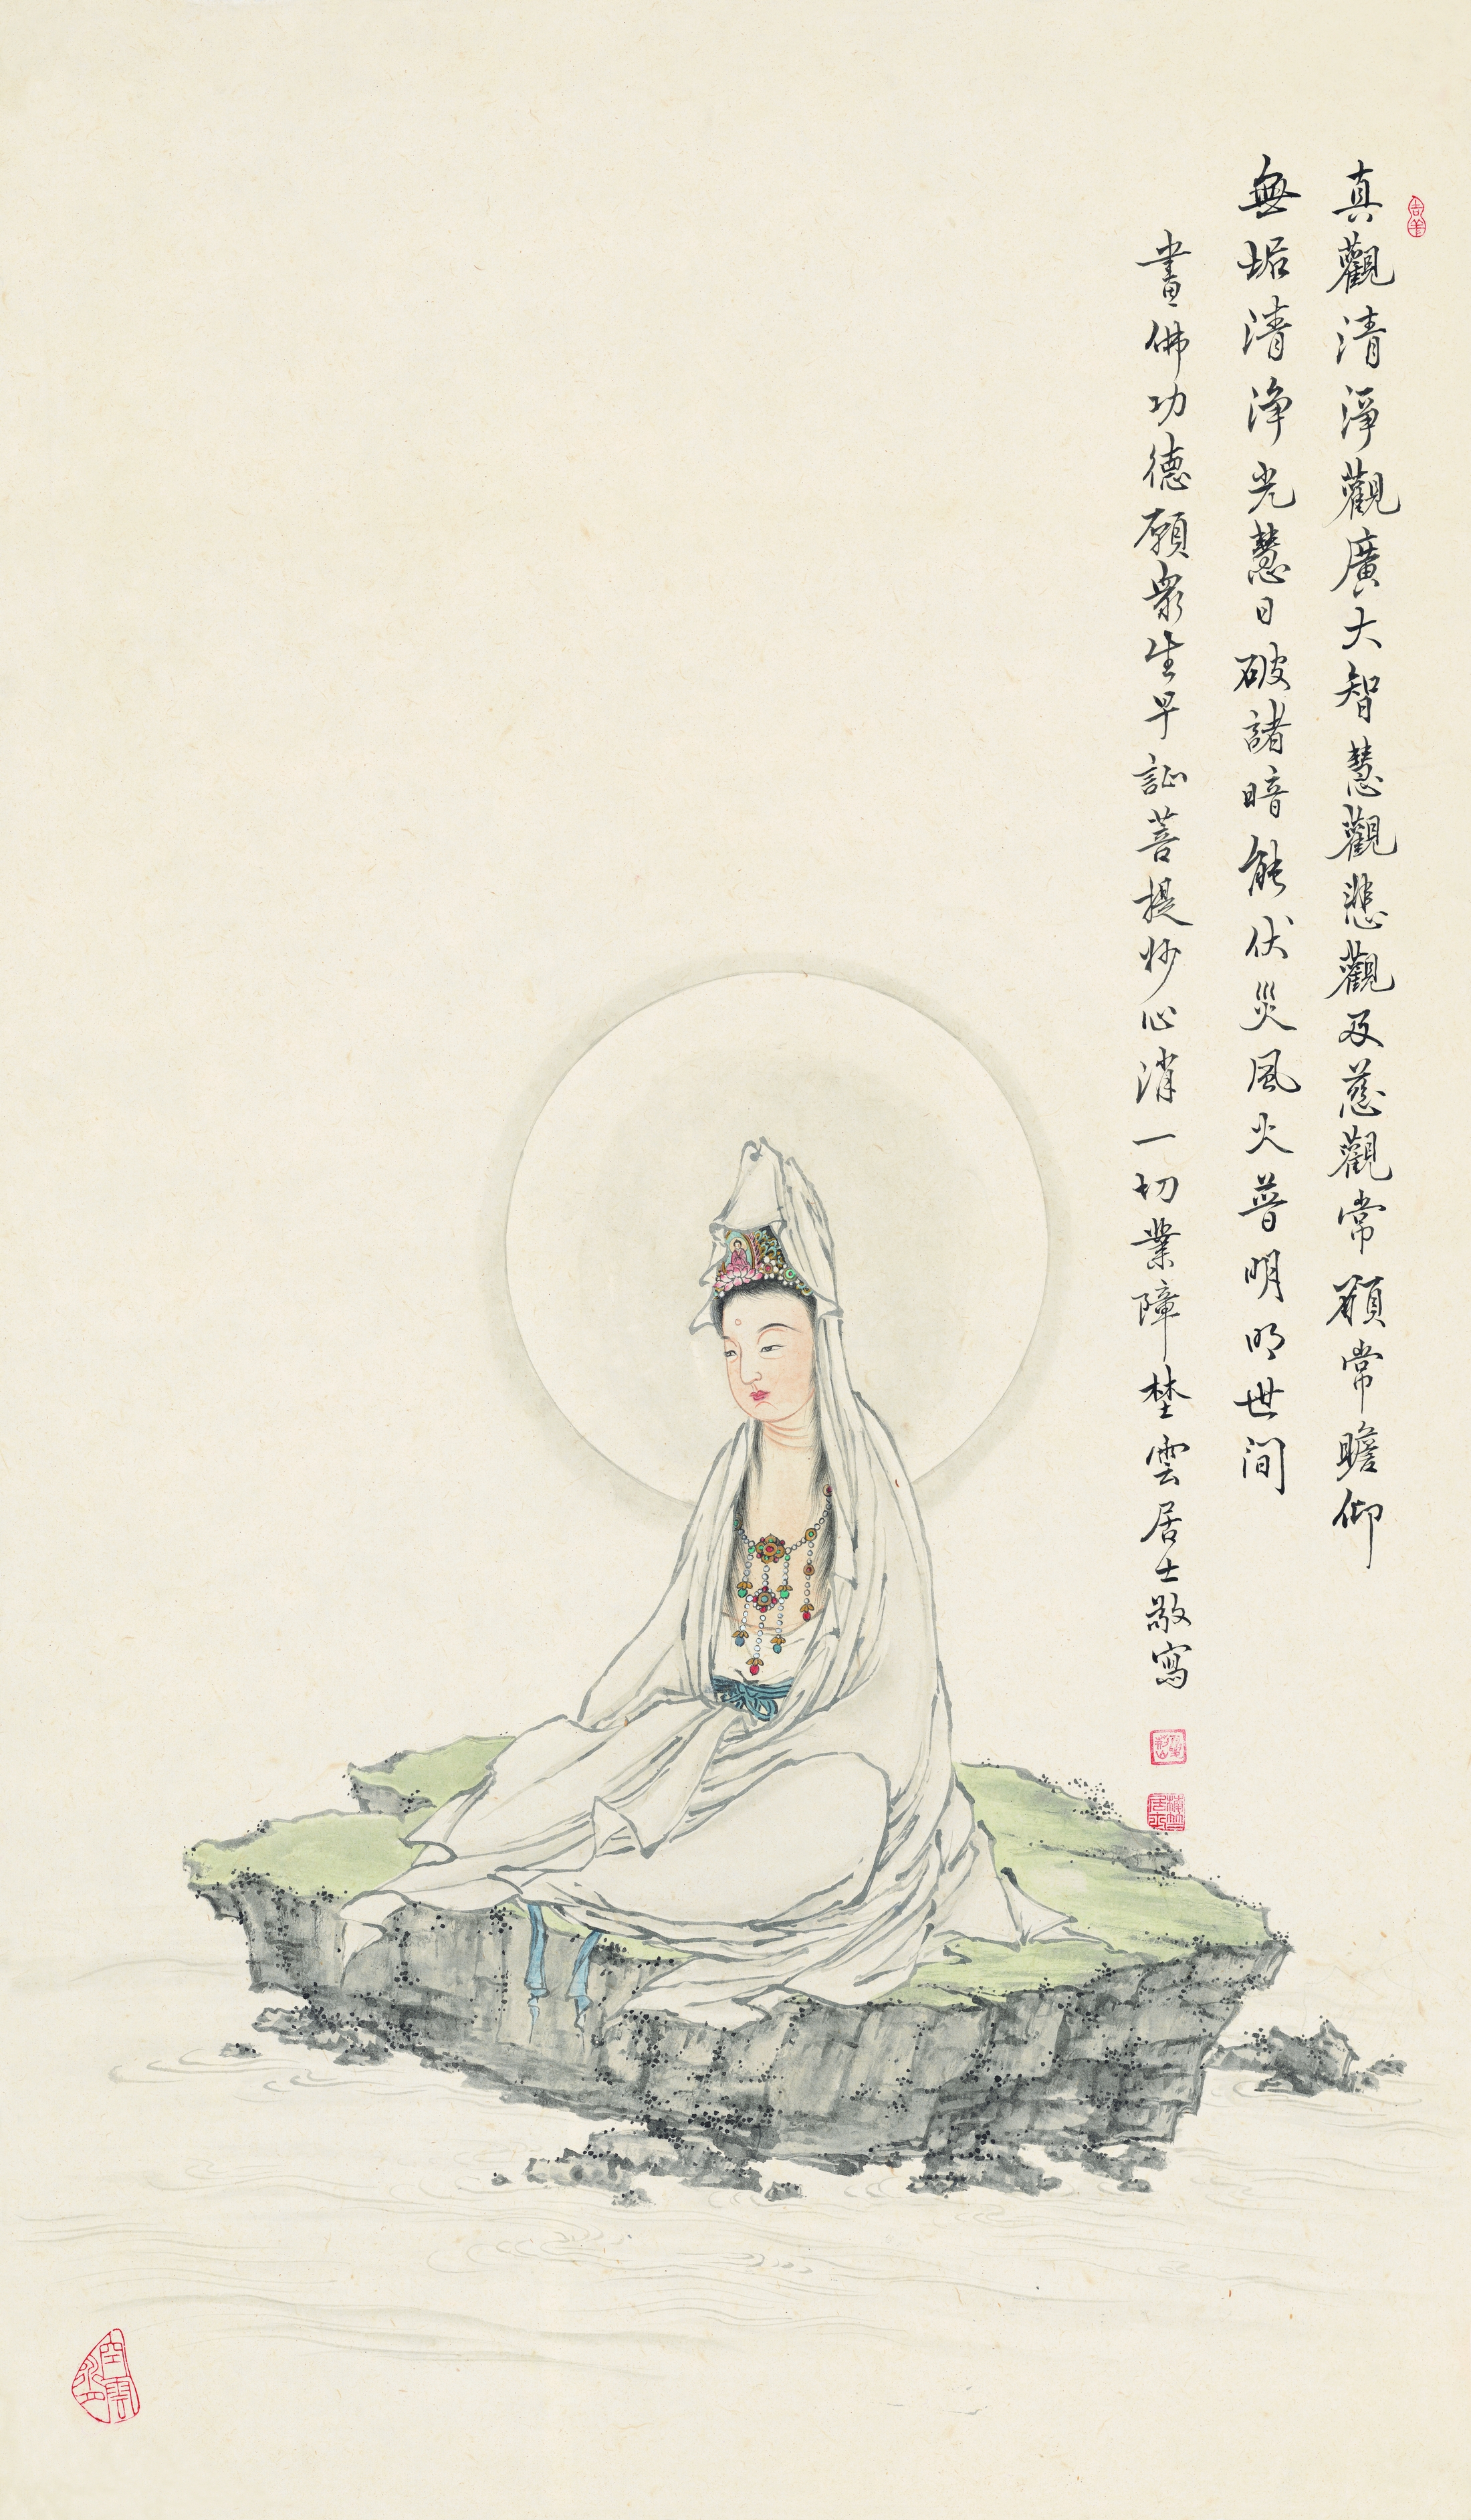 吉羊
真觀清淨觀廣大智慧觀悲觀及慈觀常願常瞻仰
無垢清淨光慧日破諸暗能伏災風火普明明世間
畫佛功德願眾生早証菩提妙心消一切業障埜雲居士敬寫